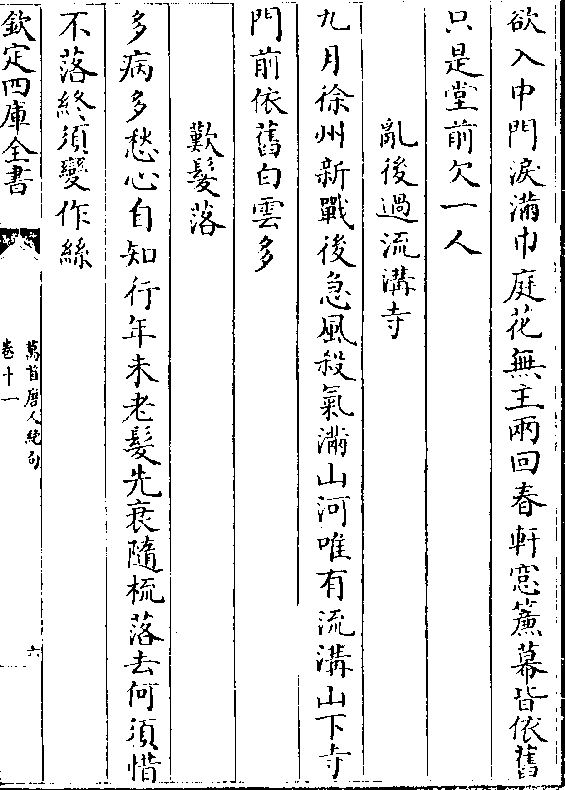 欲入中門淚滿巾庭花無主兩回春軒窓簾幕皆依舊
只是堂前欠一人
亂後過流溝寺
九月徐州新戰後急風殺氣滿山河唯有流溝山下寺
門前依舊白雲多
歎髮落
多病多愁心自知行年未老髮先衰隨梳落去何須惜
不落終須變作絲
欽定四庫全書
萬首唐人絶句
卷十一
六